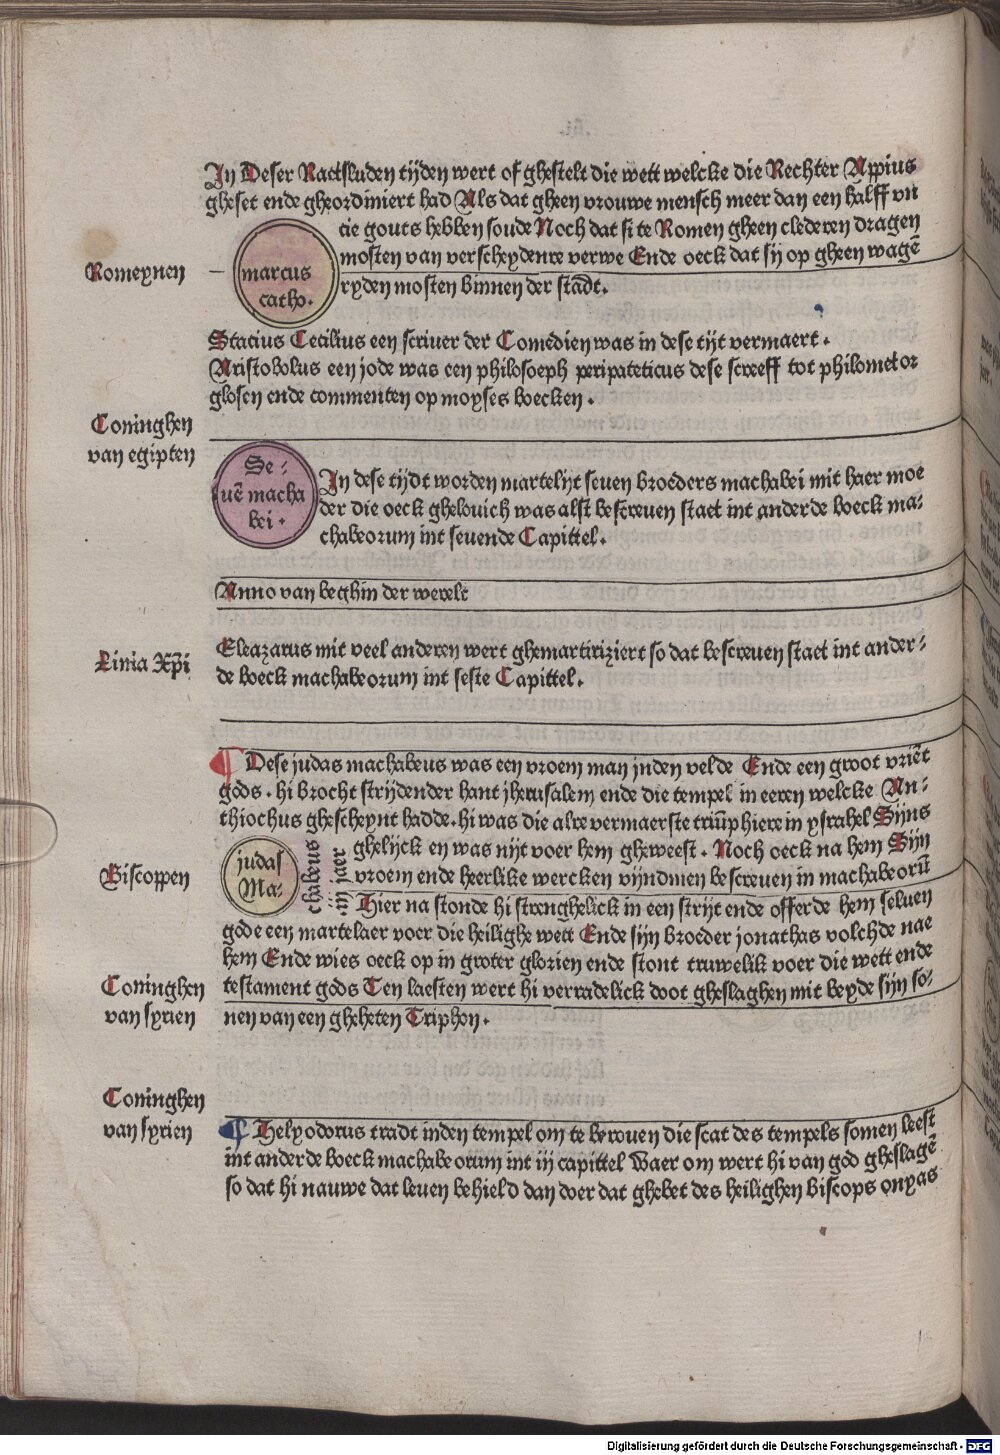 In Deser Raetsluden tijden wert of ghestelt die wett welcke die Rechter Appius
gheset ende gheordiniert had Als dat gheen vrouwe mensch meer dan een halff vn
cie gouts hebben soude Noch dat si te Romen gheen clederen dragen
mosten van verscheydenre verwe Ende oeck dat sij op gheen wagē
ryden mosten binnen der stadt.
Romeynen
marcus
catho.
Stacius Cecilius een scriuer der Comedien was in dese tijt vermaert.
Aristobolus een jode was een philosoeph peripateticus dese screeff tot philometor
glosen ende commenten op moyses boecken.
Coninghen
van egipten
Se-
uē macha
bei.
In dese tijdt worden martelijt seuen broeders machabei mit haer moe
der die oeck ghelouich was alst bescreuen staet int ander de boeck ma-
chabeorum int seuende Capittel.
Anno van beghin der werelt
Linia Xp̄i
Eleazarus mit veel anderen wert ghemartiriziert so dat bescreuen staet int ander-
de boeck machabeorum int seste Capittel.
¶ Dese judas machabeus was een vroem man jnden velde Ende een groot vriēt
gods. hi brocht strijdender hant jherusalem ende die tempel in eeren welcke An-
thiochus ghescheynt hadde. hi was die alre vermaerste triūphiere in ysrahel Sijns
ghelijck en was nijt voer hem gheweest. Noch oeck na hem Sijn
vroem ende heerlike wercken vijndmen bescreuen in machabeorū
Biscoppen
judas
Ma-
chabeus
iij jaer
Hier na stonde hi strenghelick in een strijt ende offerde hem seluen
gode een martelaer voer die heilighe wett Ende sijn broeder jonathas volchde nae
hem Ende wies oeck op in groter glorien ende stont truwelik voer die wett ende
testament gods Ten laesten wert hi verradelick doot gheslaghen mit beyde sijn so-
nen van een gheheten Triphon.
Coninghen
van syrien
Coninghen
van syrien
¶ Helyodorus tradt inden tempel om te berouen die scat des tempels somen leest
int ander de boeck machabeorum int iij capittel Waer om wert hi van god gheslagē
so dat hi nauwe dat leuen behield dan doer dat ghebet des heilighen biscops onyas
Digitalisierung gefördert durch die Deutsche Forschungsgemeinschaft - DFG